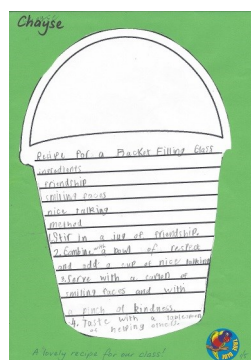 Chayse
Recipe for a Bucket Filling Class
ingredients
friendship
smiling faces
nice talking
method
1. Stir in a jug of friendship.
2. Combine with a bowl of respect
and add a cup of nice talking
3. Serve with a of
smiling faces and with
a pinch of kindness
4. Taste with a
of helping others.
A lovely recipe for our class!